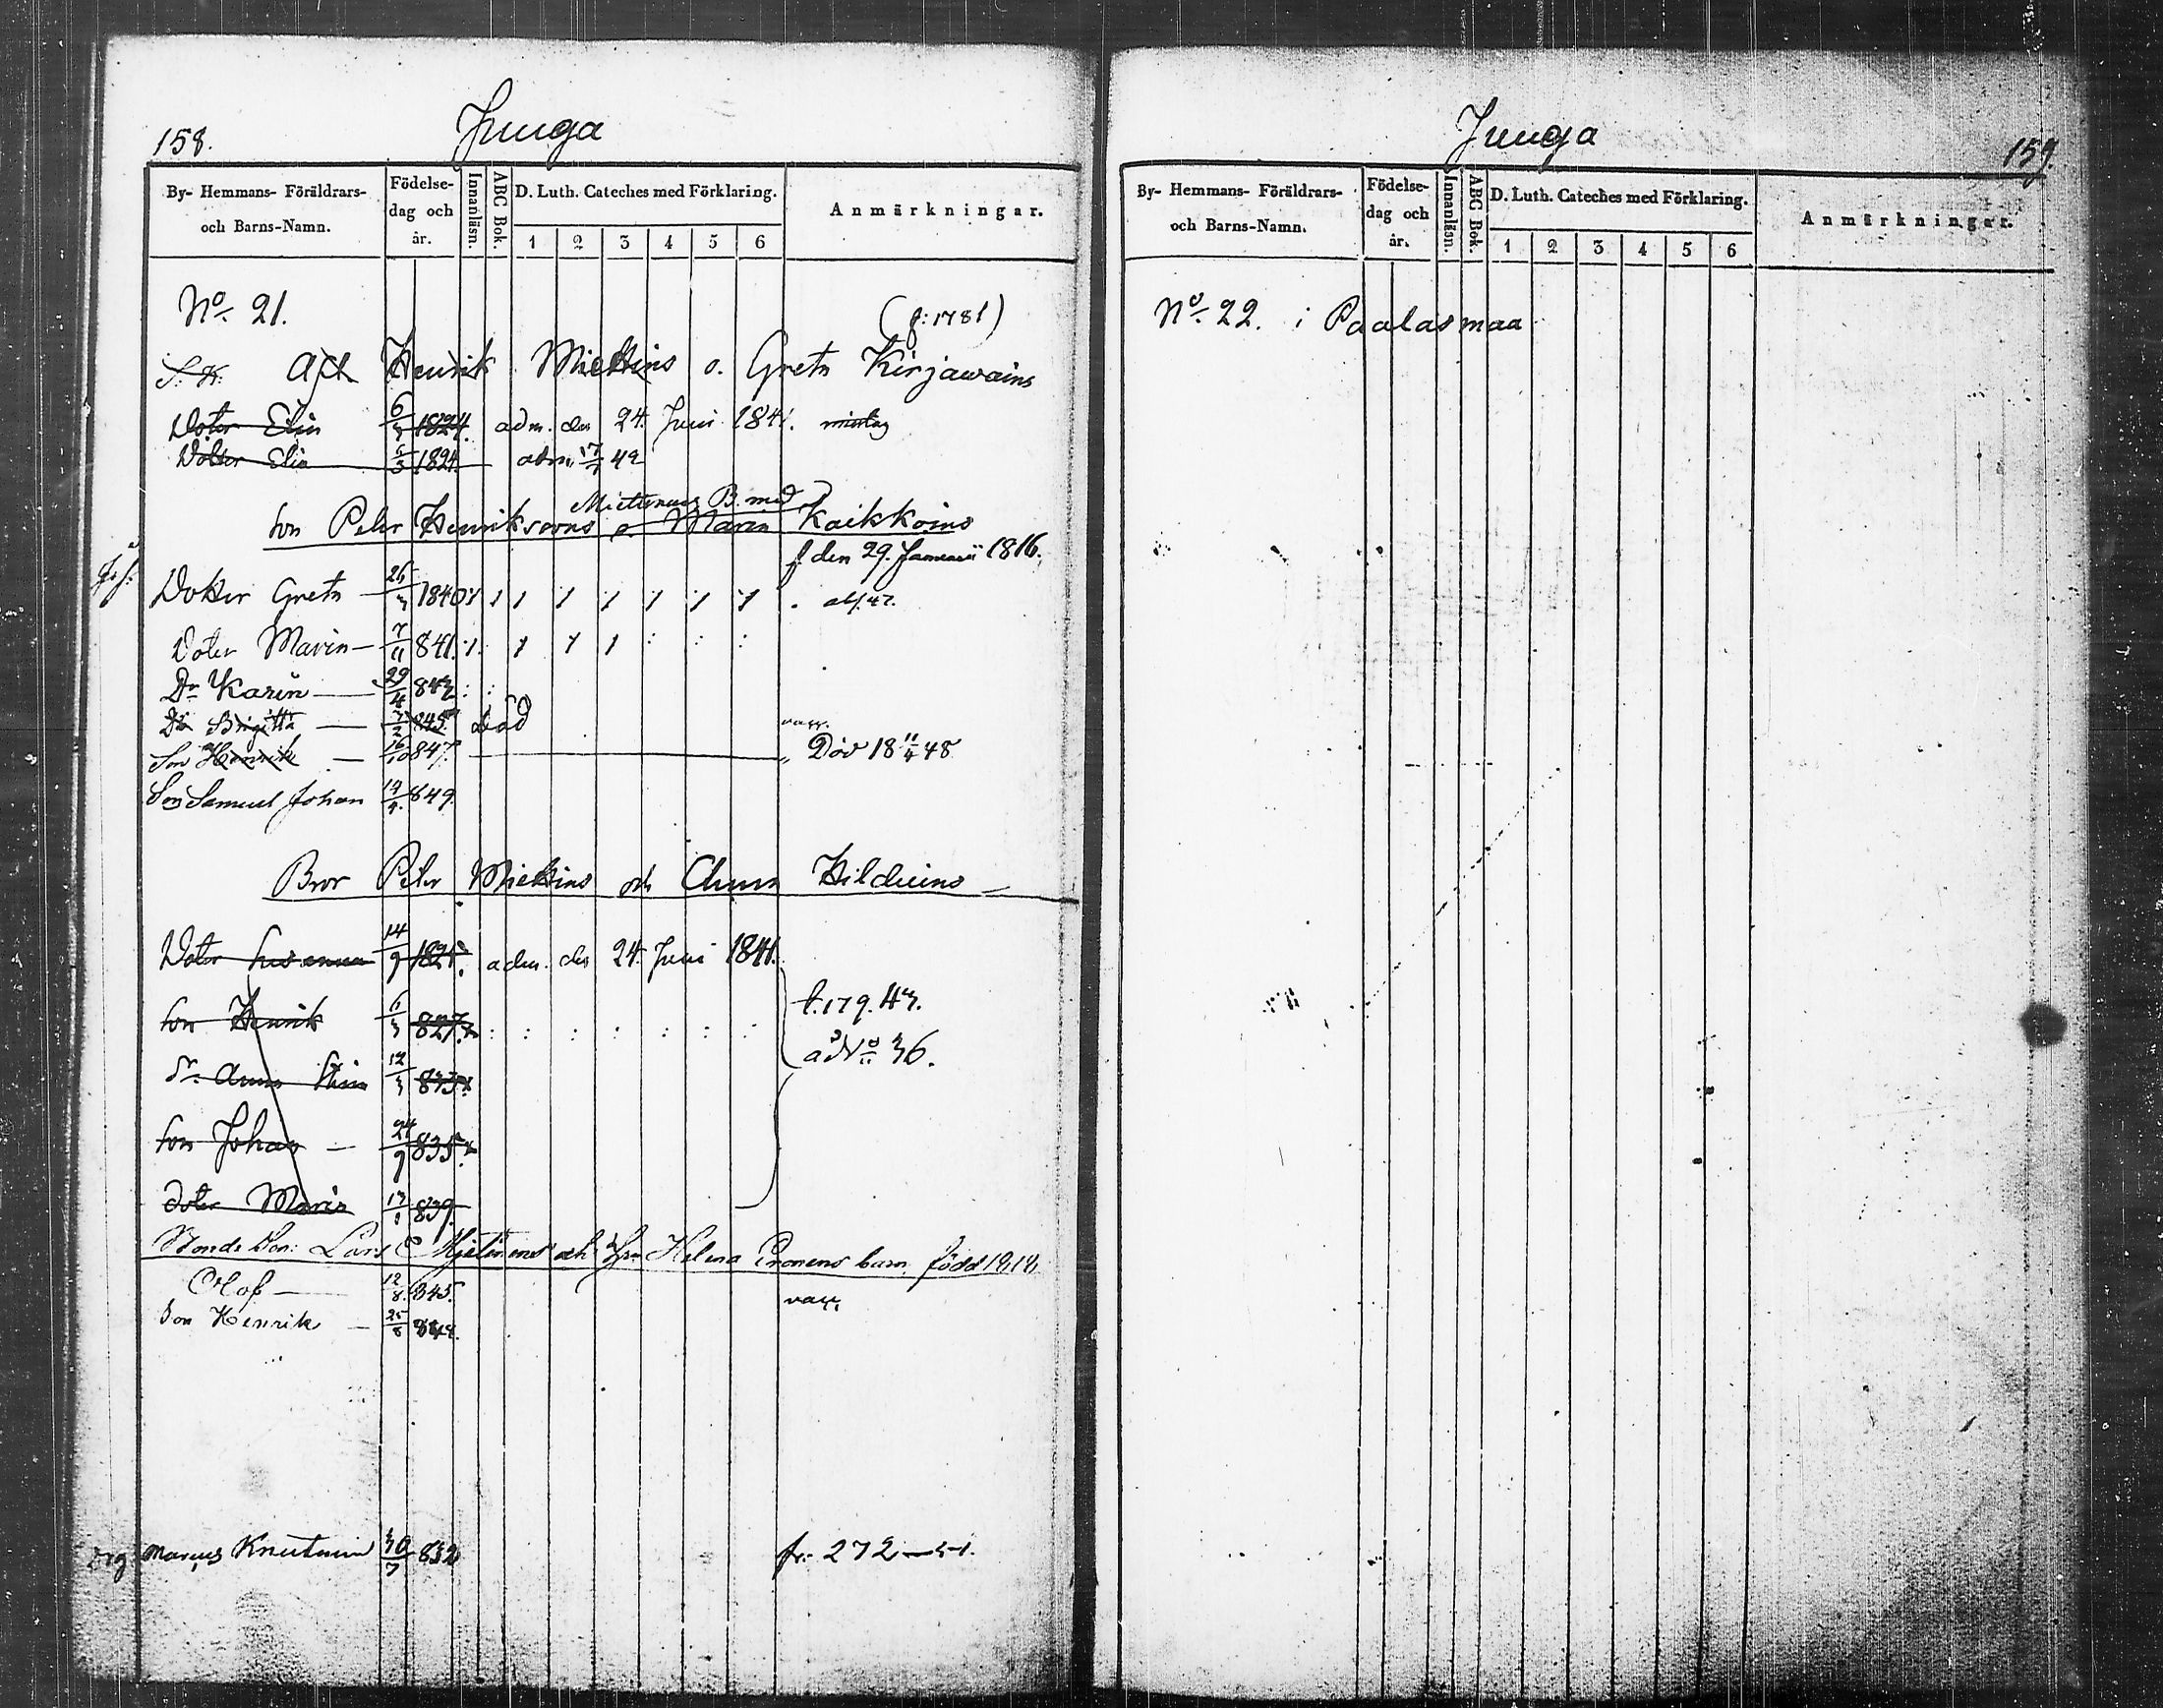 158.
Juuga
By- Hemmans- Föräldrars- och Barns-Namn.
Födelse- dag och år.
Innanläsn.
ABC Bok.
D. Luth. Cateches med Förklaring.
1 2 3 4 5 6
Anmärkningar.
No 21.
(f: 1781)
Henrik Miettins o. Greta Kirjawains
Doter Elin 6/3 1824. adm. den 24. Juni 1841.
Dotter Elin 6/3 1824 adm. 17/7 42
Miettinens B. med
son Petter Henriksons o. Maria Kaikkoins
f. den 29. Januarii 1816.
Dotter Greta 26/3 1840
Doter Maria 7/11 841.
Dr Karin 29/4 843
Dr Brigitta 845 Död
Son Henrik 16/10 847. Död 18 11/4 48
Son Samuel Johan 849.
Bror Peter Miettins och Anna Hilduins
Doter Susanna 14/9 1825. adm. den 24. Juni 1841.
son Henrik 6/3 827.
t. 179. 43.
ad No 36.
Dr Anna Stina 12/3 833
son Johan 24/9 835
doter Maria 839.
Bonde Son: Lars Mjetinens och Hu Helena barn född 1818
Olof 12/8 845.
vacc.
Son Henrik 25/8 848.
Drg Marcus Knutinen 30/7 832
fr. 272 — 51.
Juuga
159.
By- Hemmans- Föräldrars- och Barns-Namn.
Födelse- dag och år.
Innanläsn.
ABC Bok.
D. Luth. Cateches med Förklaring.
1 2 3 4 5 6
Anmärkningar.
No 22. i Paalasmaa